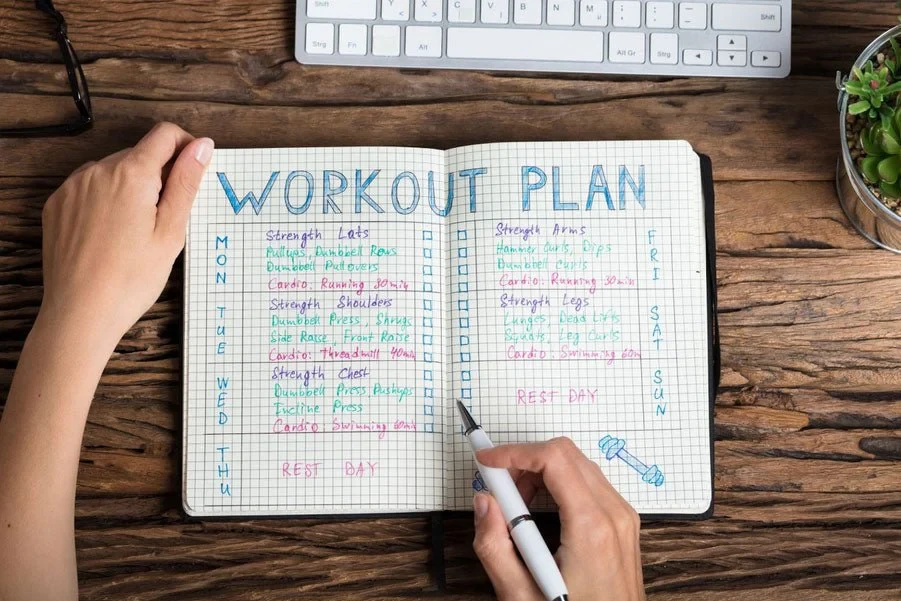 Shift
Y
X
C
V
B
N
M
Shift
Strg
Fn
Alt
Alt Gr
Strg
WORKOUT PLAN
MON
Strength Lats
Pullups, Dumbbell Rows
Dumbbell Pullovers
Cardio: Running 30min
TUE
Strength Shoulders
Dumbbell Press, Shrugs
Side Raise, Front Raise
Cardio: Threadmill 40min
WED
Strength Chest
Dumbbell Press, Pushups
Incline Press
Cardio: Swimming 60min
THU
REST DAY
FRI
Strength Arms
Hammer Curls, Dips
Dumbbell Curls
Cardio: Running 30min
SAT
Strength Legs
Lunges, Dead Lifts
Squats, Leg Curls
Cardio: Swimming 60m
SUN
REST DAY